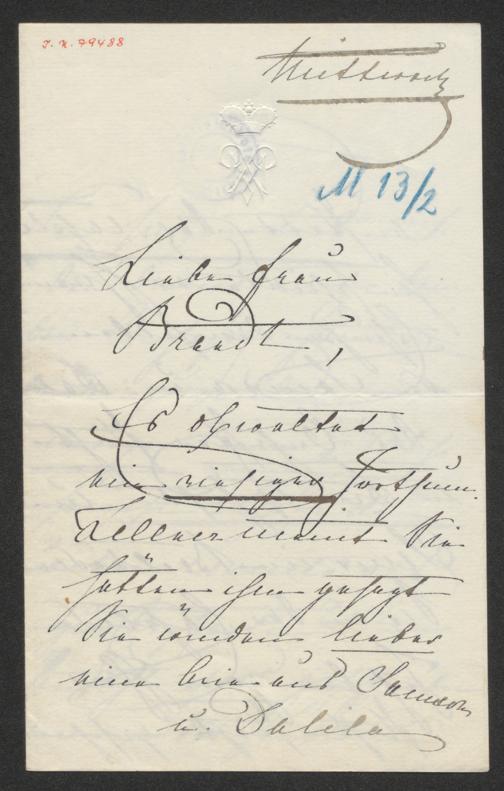 I. N. 79488
Mittwoch
M 13/2
Liebe Frau
Brandt,
Es obwaltet
ein riesiger Irrthum.
Zellner meint Sie
hätten ihm gesagt
Sie würden lieber
eine Arie aus Samson
u. Dalila